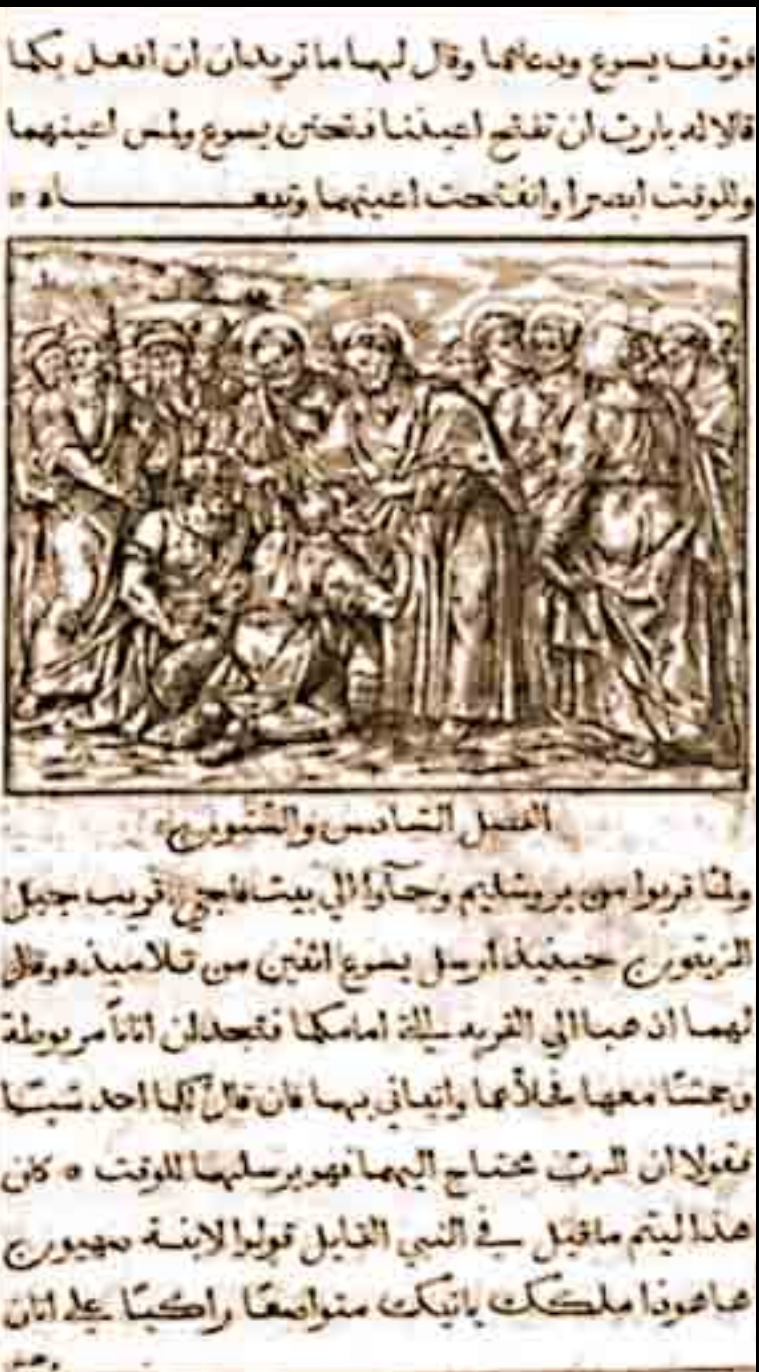 فوقف يسوع ودعاهما وقال لهما ما تريدان ان افعل بكما
قالا له يارب ان تفتح اعيننا فتحنن يسوع ولمس اعينهما
وللوقت ابصرا وانفتحت اعينهما وتبعــــــاه
الفصل السادس والستون
ولما قربوا من يروشليم وجآوا الي بيت فاجي قريب جبل
الزيتون حينيذ ارسل يسوع اثنين من تلاميذه وقال
لهما اذهبا الي القريه التي امامكما فتجدان اتاناً مربوطة
وجحشًا معها فحلاهما واتياني بهما فان قال لكما احد شيئًا
فقولا ان الرب محتاج اليهما فهو يرسلهما للوقت كان
هذا ليتم ما قيل في النبي القايل قولوا لابنة صهيون
ها هوذا ملكك ياتيك متواضعًا راكبًا علي اتان